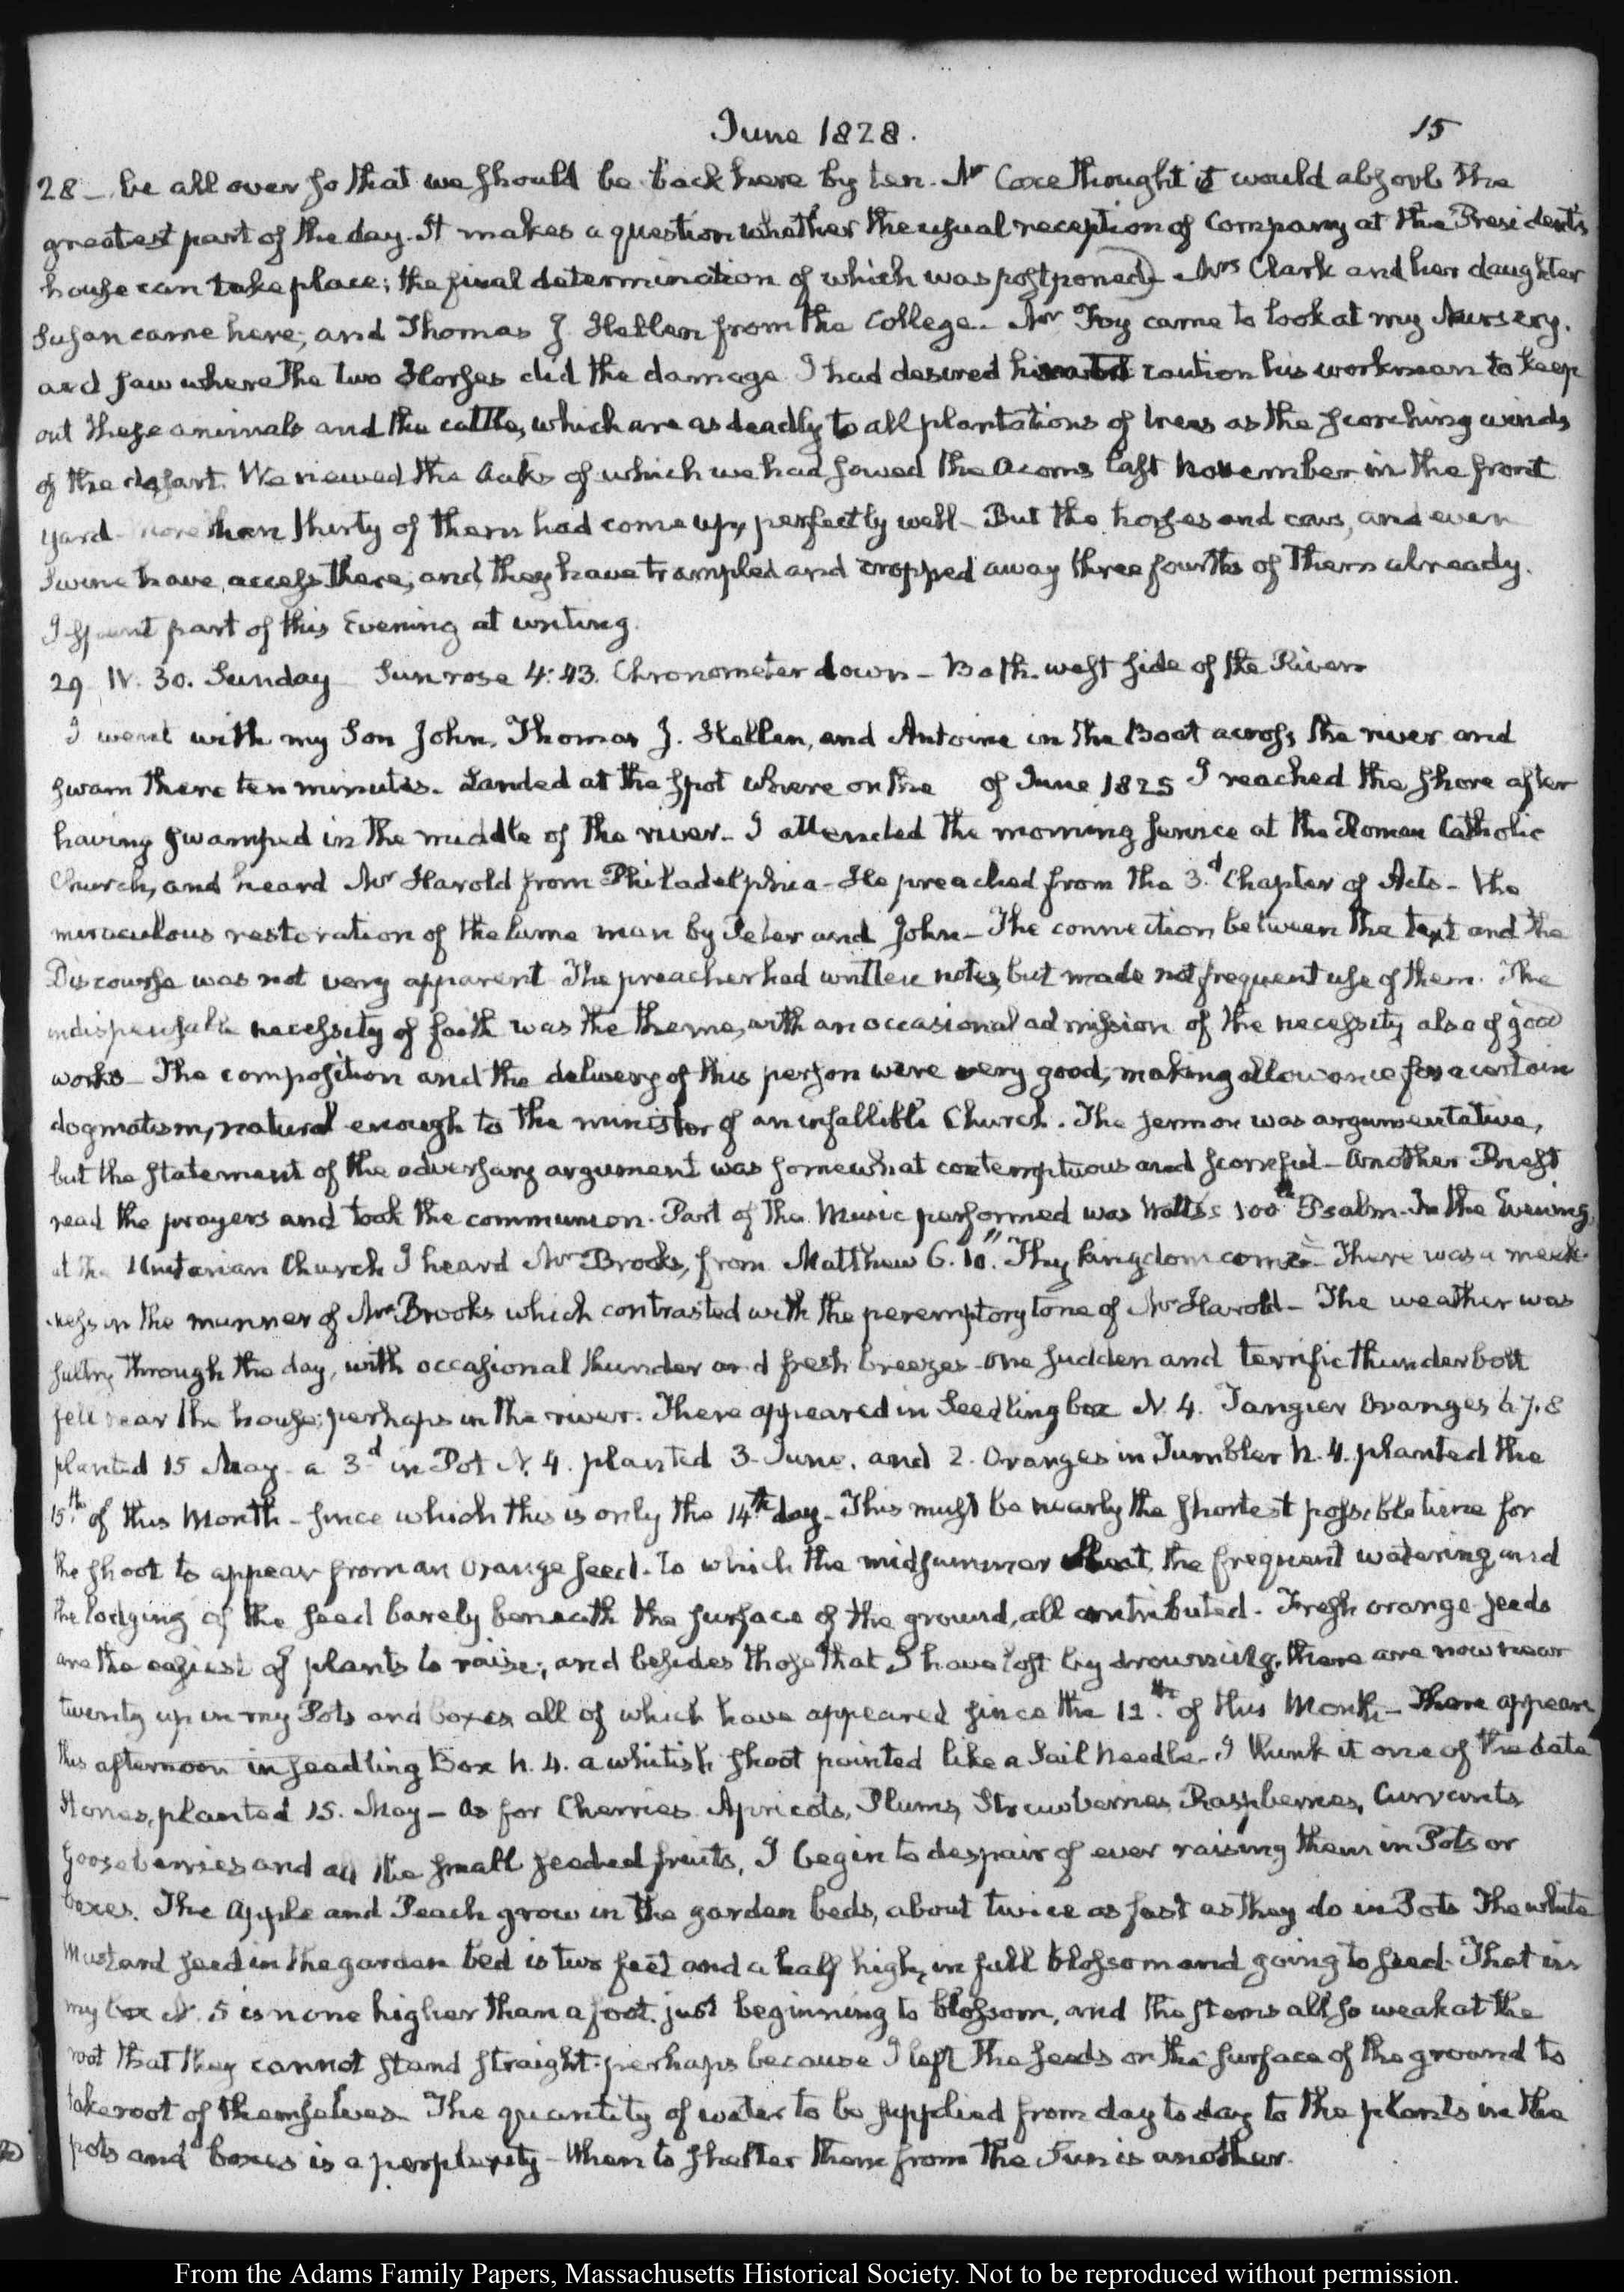 June 1828. 15
28 - be all over so that we should be back here by ten. Mr Coxe thought it would absorb the
greatest part of the day. It makes a question whether the usual reception of Company at the President's
house can take place; the final determination of which was postponed) Mrs Clark and her daughter
Susan came here; and Thomas J. Hellen from the College. Mr Foy came to look at my Nursery.
and saw where the two Horses did the damage. I had desired him to caution his workmen to keep
out these animals and the cattle, which are as deadly to all plantations of trees as the scorching winds
of the desart. We viewed the Oaks of which we had sowed the Acorns last November in the front
yard - more than thirty of them had come up, perfectly well - But the horses and cows, and even
Swine have access there, and they have trampled and cropped away three fourths of them already.
I spent part of this Evening at writing.
29 IV. 30. Sunday Sun rose 4:43. Chronometer down - Bath. west side of the River
I went with my Son John, Thomas J. Hellen, and Antoine in the Boat across the river and
swam there ten minutes. Landed at the spot where on the of June 1825 I reached the shore after
having swamped in the middle of the river - I attended the morning service at the Roman Catholic
Church, and heard Mr Harold from Philadelphia - He preached from the 3.d Chapter of Acts - the
miraculous restoration of the lame man by Peter and John - The connection between the text and the
Discourse was not very apparent The preacher had written notes, but made not frequent use of them. The
indispensable necessity of faith was the theme, with an occasional admission of the necessity also of good
works - The composition and the delivery of this person were very good, making allowance for a certain
dogmatism, natural enough to the minister of an infallible Church. The sermon was argumentative,
but the statement of the adversary argument was somewhat contemptuous and scornful - Another Priest
read the prayers and took the communion. Part of the Music performed was Watts's 100th Psalm. In the Evening
at the Unitarian Church I heard Mr Brooks, from Matthew 6. 10. "Thy kingdom come" - There was a meek-
ness in the manner of Mr Brooks which contrasted with the peremptory tone of Mr Harold - The weather was
sultry through the day, with occasional thunder and fresh breezes - one sudden and terrific thunderbolt
fell near the house; perhaps in the river. There appeared in Seedling box N. 4. Tangier Oranges 6. 7. 8
planted 15 May - a 3d in Pot N. 4. planted 3 June, and 2. Oranges in Tumbler N. 4. planted the
15th of this Month - since which this is only the 14th day - This must be nearly the shortest possible time for
the shoot to appear from an Orange seed. to which the midsummer heat, the frequent watering and
the lodging of the seed barely beneath the surface of the ground, all contributed. Fresh orange seeds
are the easiest of plants to raise; and besides those that I have lost by drowning, there are now near
twenty up in my Pots and boxes all of which have appeared since the 12th of this Month - There appears
this afternoon in seedling Box N. 4. a whitish shoot pointed like a Sail needle - I think it one of the date
Stones, planted 15. May - As for Cherries Apricots, Plums, Strawberries, Raspberries, Currants
Gooseberries and all the small seeded fruits, I begin to despair of ever raising them in Pots or
boxes. The Apple and Peach grow in the garden beds, about twice as fast as they do in Pots The white
Mustard seed in the garden bed is two feet and a half high, in full blossom and going to seed. That in
my box N. 5 is none higher than a foot, just beginning to blossom, and the stems all so weak at the
root that they cannot stand straight; perhaps because I left the seeds on the surface of the ground to
take root of themselves. The quantity of water to be supplied from day to day to the plants in the
pots and boxes is a perplexity - When to shelter them from the Sun is another.
From the Adams Family Papers, Massachusetts Historical Society. Not to be reproduced without permission.